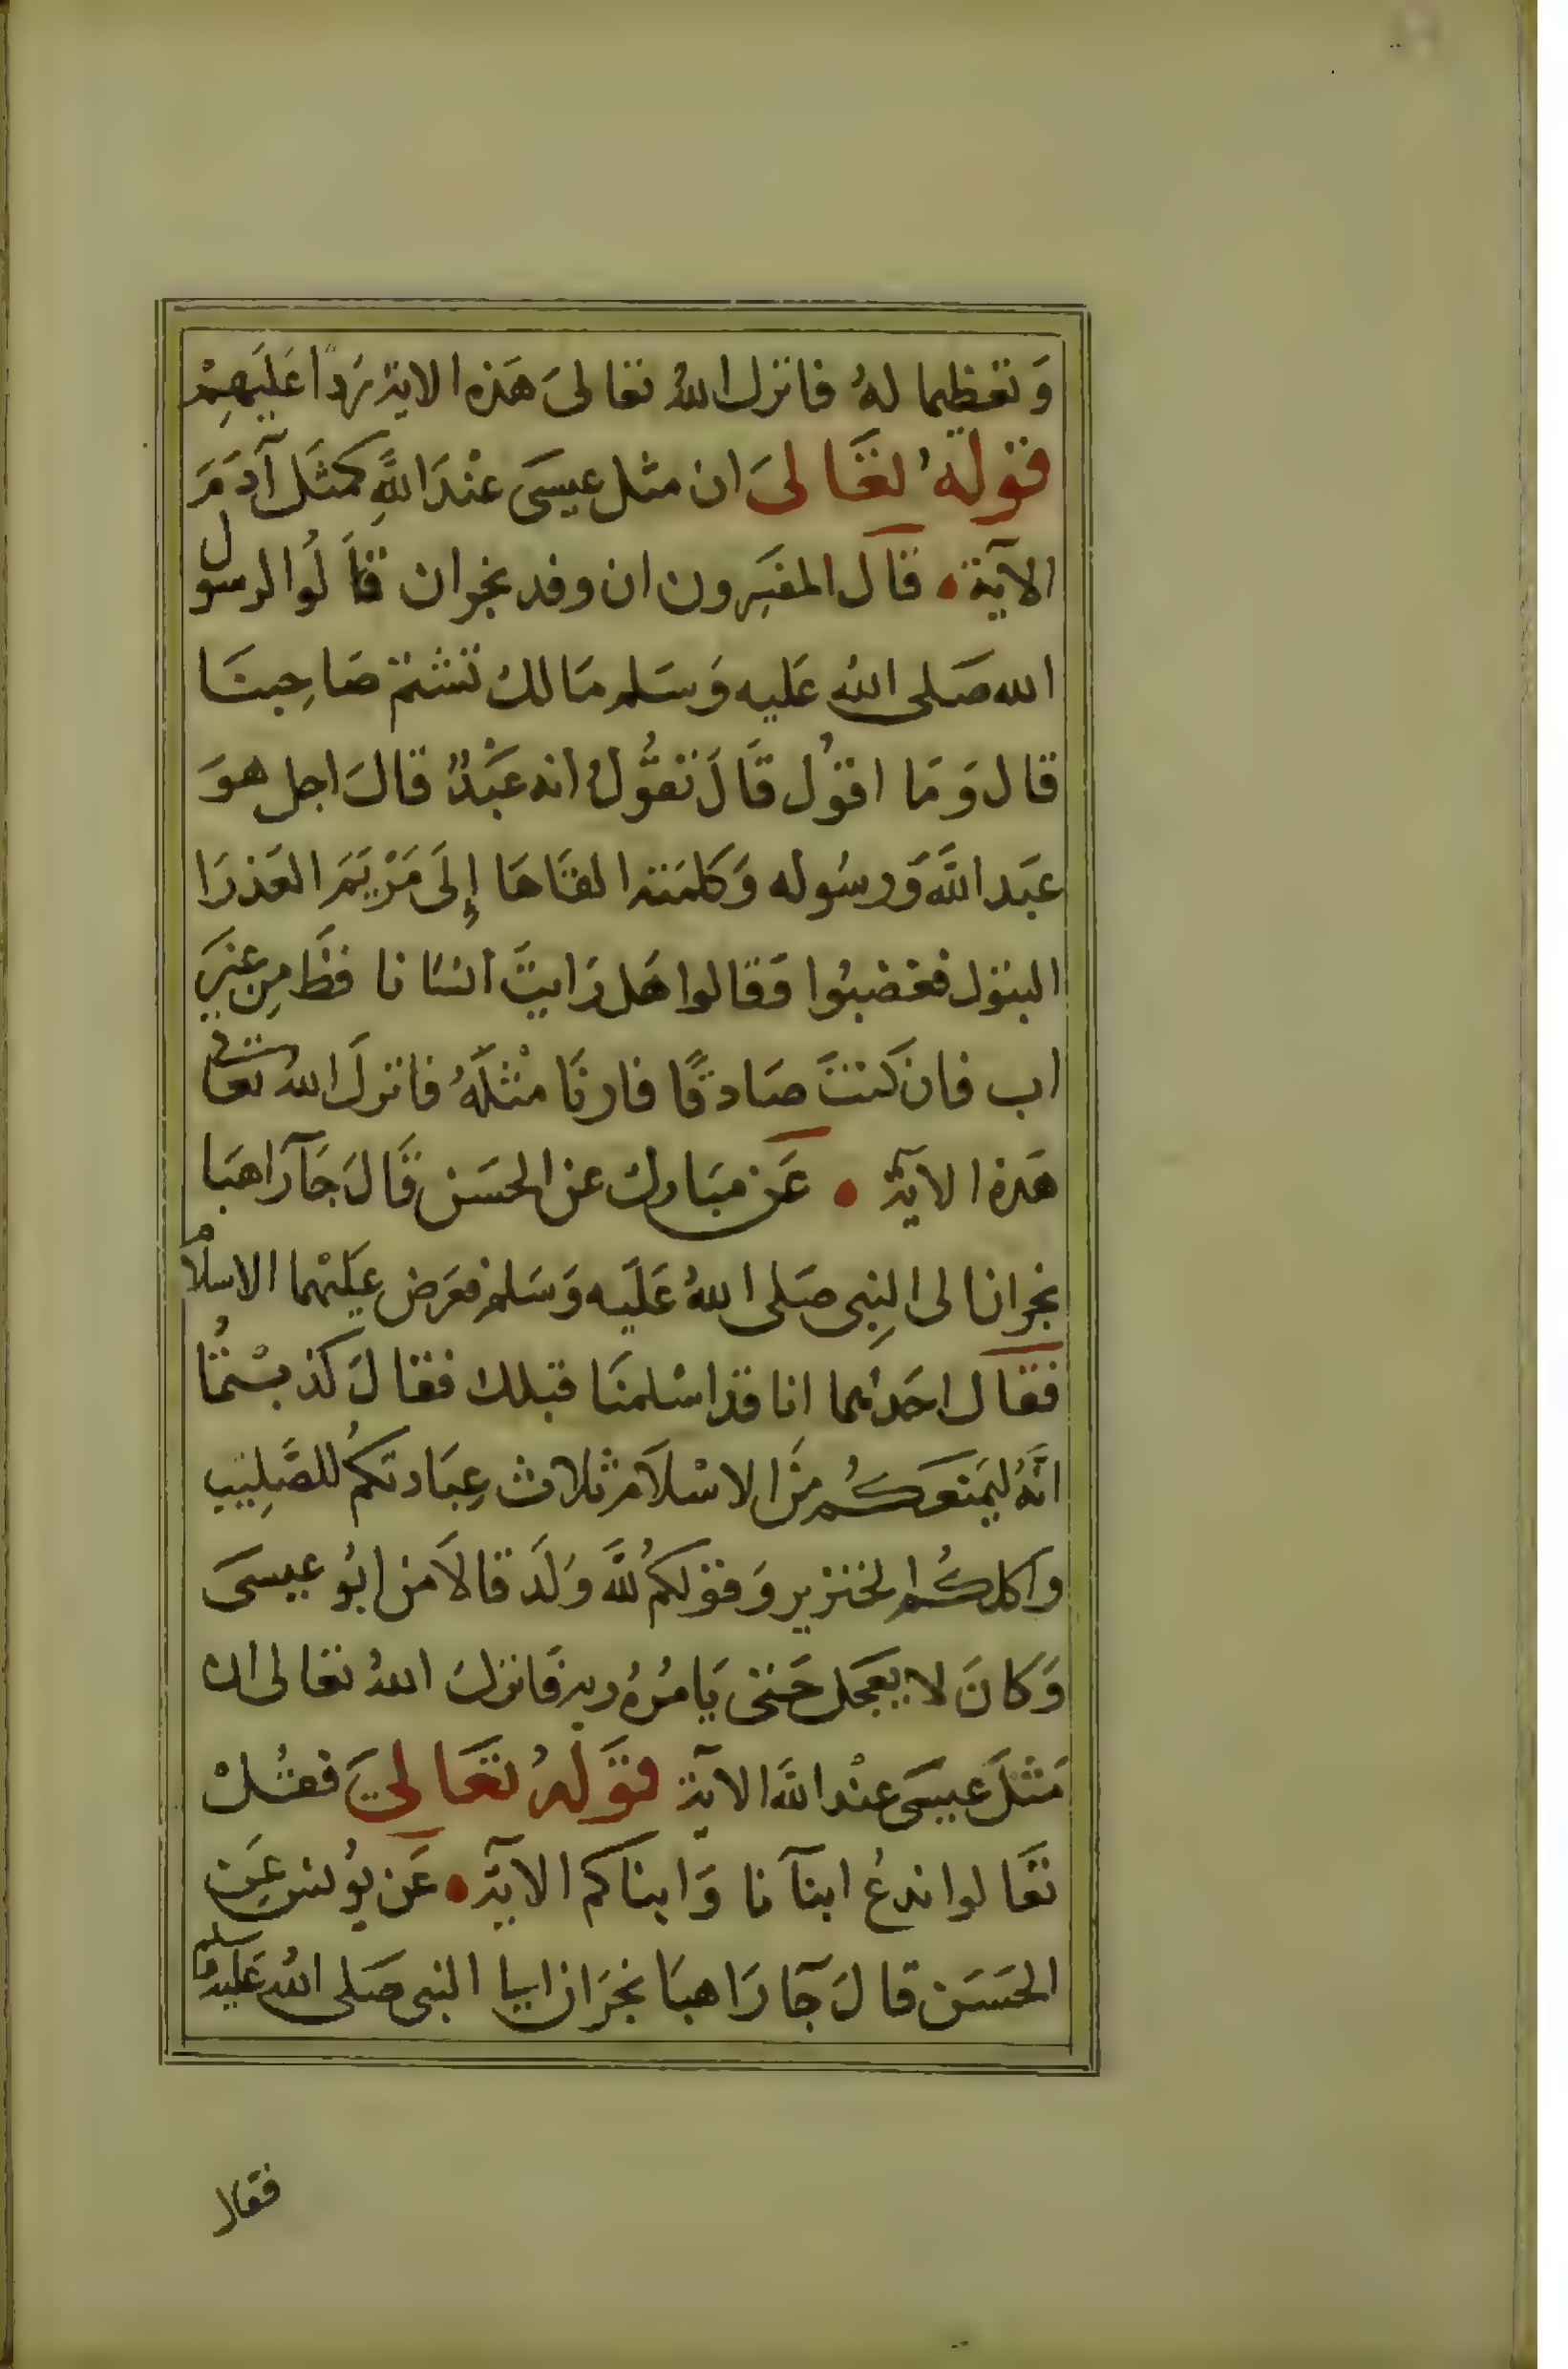 وَتعظيما لهُ فانزل اللهُ تعالىَ هَذه الاية رَدًا عَلَيهِمْ
قوله تعَالىَ ان مثل عيسَى عنْدَ اللَّهِ كمثَل آدَمَ
الآية قال المفسِرون ان وفد نجران قالُوا لرسول
الله صَلى اللهُ عَليه وَسَلم مَالك تشتم صَاحِبنَا
قال وَمَا اقوُل قَالَ تقوُّلُ انه عَبْدٌ قالَ اجل هوَ
عَبد اللَّه وَرسُوله وَكلمَته القَاهَا إِلَى مَرْيَمَ العَذرَا
البتول فغضبُوا فَقالوا هَل رَايتَ انسَانا قطَ مِن غيَر
اب فان كنتَ صَادقًا فارنَا مثْلَهُ فانزلَ اللهُ تعَالى
هَذه الآية عَن مبَارك عن الحسَن قَالَ جَآ رَاهبَا
نجران الى النِبى صَلى اللهُ عَلَيه وَسَلم فعَرَض عَلَيْهما الاسلام
فقال احَدهما انا قد اسْلمنَا قبلك فقالَ كذبْتُمَا
انَّهُ ليَمنعكُم منَ الاسْلَام ثلاث عِبَادتكُم للصَّلِيب
واكلكُم الخنزير وَقولكمُ للَّه وَلَد قالَا مَن ابُو عيسَى
وَكانَ لا يعجَل حَتى يَامُرهُ ربه فَانزلَ اللهُ تعَالى ان
مَثلَ عيسَى عنْد اللَّه الآية قوَلهُ تعَالىَ فقُلْ
تعَالوا ندعُ ابنآنا وَابناكم الآية عَن يُونس عَنِ
الحَسَن قالَ جَآ رَاهبَا نجرَان ايا النبى صَلى اللهُ عَليه وسلم
فقال